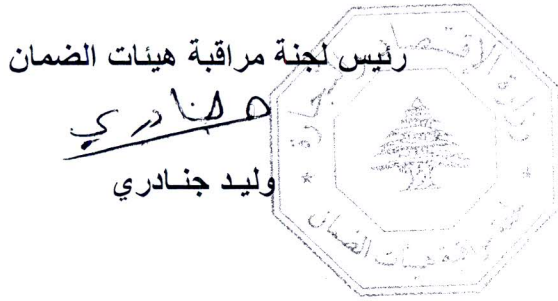 رئيس لجنة مراقبة هيئات الضمان
وليد جنادري
وزارة الإقتصاد والتجارة
لجنة مراقبة هيئات الضمان